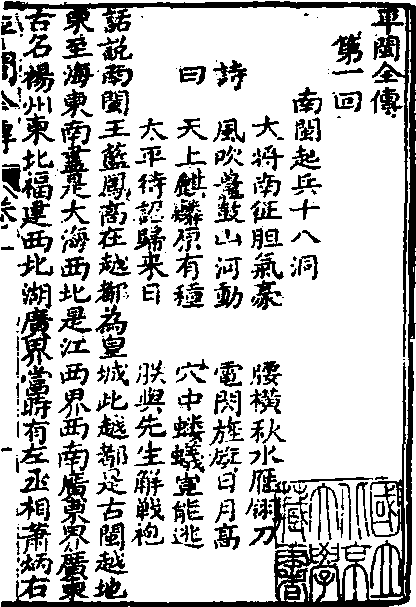 平閩全傳
第一回
南閩起兵十八洞
詩曰
大將南征胆氣豪 腰橫秋水雁翎刀
風吹鼉鼓山河動 電閃旌旗日月高
天上麒麟原有種 穴中螻蟻豈能逃
太平待詔歸來日 朕與先生解戰袍
話說南閩王藍鳳高在越都為皇城此越都是古閩越地
東至海東南盡是大海西北是江西界西南廣東界廣東
古名楊州東北福建西北湖廣界當時有左丞相蕭炳右
平閩全傳 卷一
國立北京大學藏書